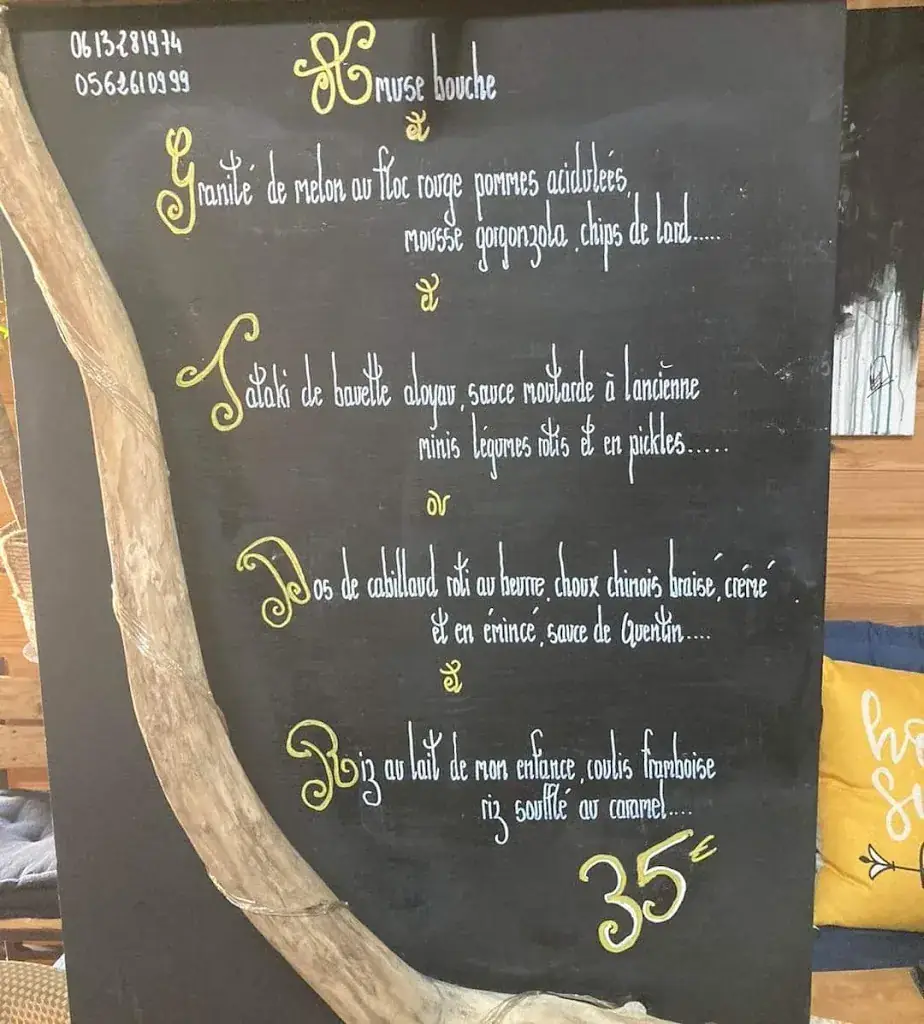 0613281974
0562610999
Amuse bouche
et
Granité de melon au floc rouge pommes acidulées,
mousse gorgonzola, chips de lard.....
et
Tataki de bavette aloyau, sauce moutarde à lancienne
minis légumes rotis et en pickles.....
ou
Dos de cabillaud roti au beurre, choux chinois braisé, crémé
et en émincé, sauce de Quentin....
et
Riz au lait de mon enfance, coulis framboise
riz soufflé au caramel....
35€